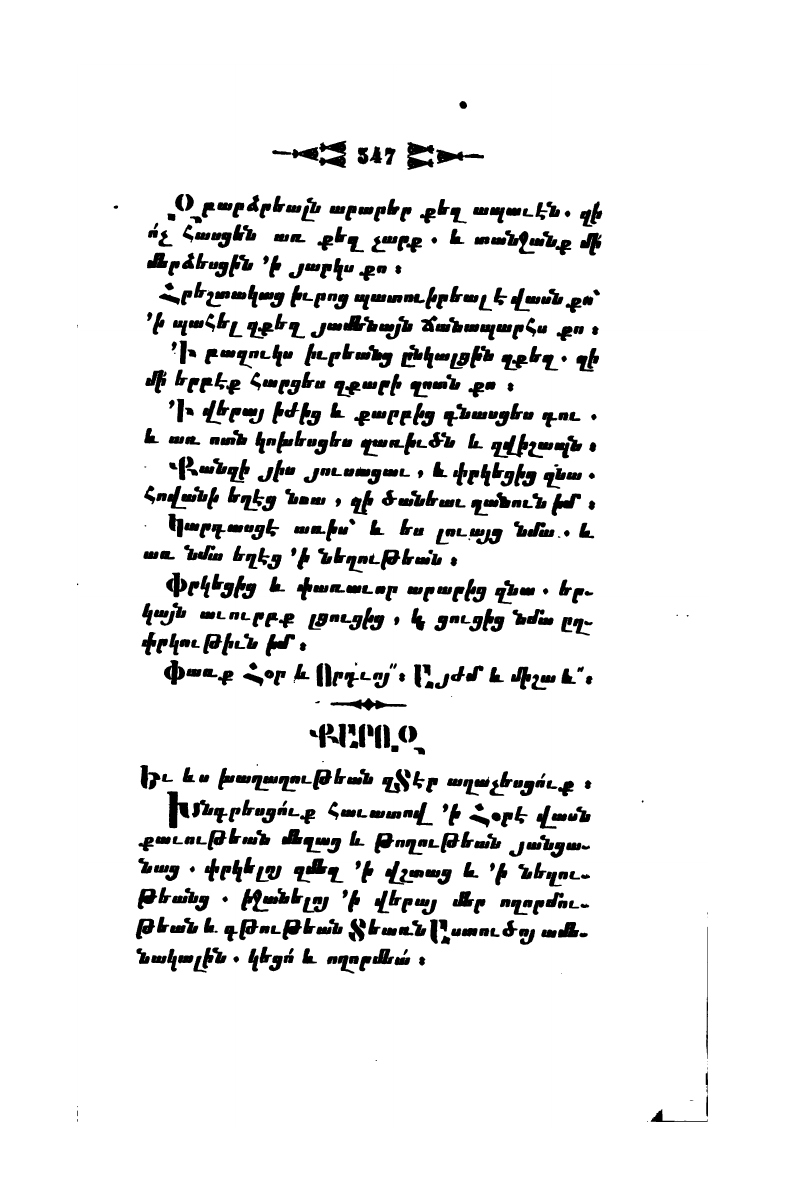 347
Զբարձրեալն արարեր քեզ ապաւէն․ զի
ո՛չ հասցեն առ քեզ չարք․ և տանջանք մի
մերձեսցին 'ի յարկս քո։
Հրեշտակաց իւրոց պատուիրեալ է վասն քո՝
'ի պահել զքեզ յամենայն ճանապարհս քո։
'Ի բազուկս իւրեանց ընկալցին զքեզ․ զի
մի երբէք հարցես զքարի զոտն քո։
'Ի վերայ իժից և քարբից գնասցես դու․
և առ ոտն կոխեսցես զառիւծն և զվիշապն։
Քանզի յիս յուսացաւ, և փրկեցից զնա․
հովանի եղէց նմա, զի ծաներաւ զանուն իմ։
Կարդասցէ առիս՝ և ես լուայց նմա․ և
առ նմա եղէց 'ի նեղութեան։
Փրկեցից և փառաւոր արարից զնա․ եր-
կայն աւուրբք լցուցից, և ցուցից նմա ըզ-
փրկութիւն իմ։
Փառք Հօր և Որդւոյ՟։ Այժմ և միշտ և՟։
ՔԱՐՈԶ
Եւ ևս խաղաղութեան զՏէր աղաչեսցո՛ւք։
Խնդրեսցո՛ւք հաւատով 'ի Հօրէ վասն
քաւութեան մեղաց և թողութեան յանցա-
նաց․ փրկելոյ զմեզ 'ի վշտաց և 'ի նեղու-
թեանց․ իջանելոյ 'ի վերայ մեր ողորմու-
թեան և գթութեան Տեառն Աստուծոյ ամե-
նակալին․ կեցո՛ և ողորմեա՛։